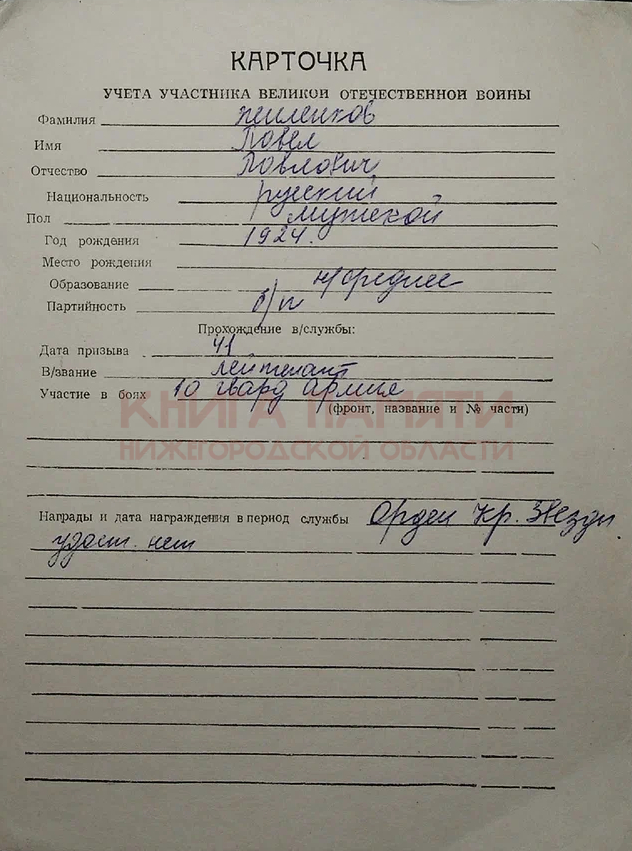 КАРТОЧКА
УЧЕТА УЧАСТНИКА ВЕЛИКОЙ ОТЕЧЕСТВЕННОЙ ВОЙНЫ
Фамилия
Имя Павел
Отчество Павлович
Национальность русский
Пол мужской
Год рождения 1924.
Место рождения
Образование н/среднее
Партийность б/п
Прохождение в/службы:
Дата призыва 41
В/звание лейтенант
Участие в боях 10 гвард армия
(фронт, название и № части)
КНИГА ПАМЯТИ
НИЖЕГОРОДСКОЙ ОБЛАСТИ
Награды и дата награждения в период службы Орден Кр. Звезды
удост. нет